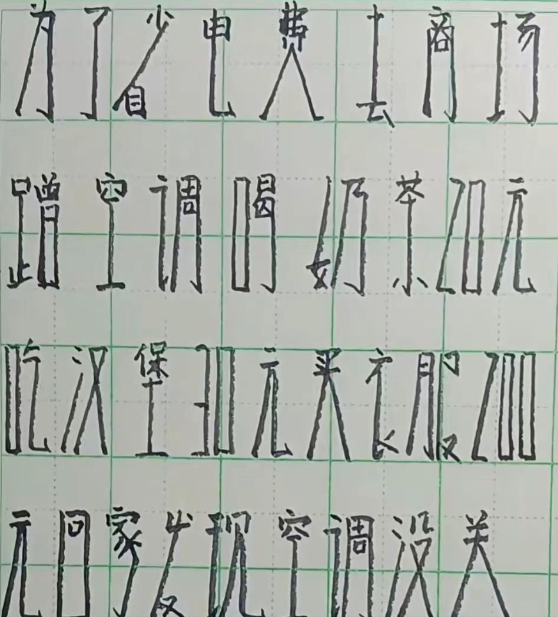 为了省电费去商场
蹭空调喝奶茶20元
吃汉堡30元买衣服200
元回家发现空调没关